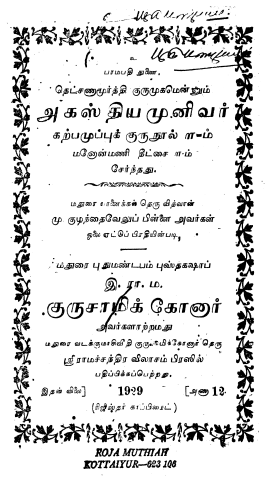 உ
பரமபதி துணை.
தெட்சணாமூர்த்தி குருமுகமென்னும்
அகஸ்தியமுனிவர்
கற்பமுப்புக் குருநூல் ள-ம்
மனோன்மணி தீட்சை ஈ-ம்
சேர்ந்தது.
மதுரை தெரு வித்வான்
மு. குழந்தைவேலுப் பிள்ளை அவர்கள்
ஏட்டுப் பிரதியின்படி,
மதுரை புதுமண்டபம் புஸ்தகஷாப்
இ. ரா. ம.
குருசாமிக் கோனார்
அவர்களாற்றமது
மதுரை வடக்குமாசிவீதி குருசாமிக்கோனார் தெரு
ஸ்ரீராமச்சந்திர விலாசம் பிரஸில்
பதிப்பிக்கப்பெற்றது.
இதன் விலை] 1929 [அணா 12
(ரிஜிஸ்தர் காப்பிரைட்)
ROJA MUTHIAH
KOTTAIYUR—623 106